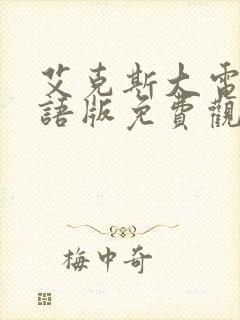 艾克斯大雷
語版免費觀
梅中奇